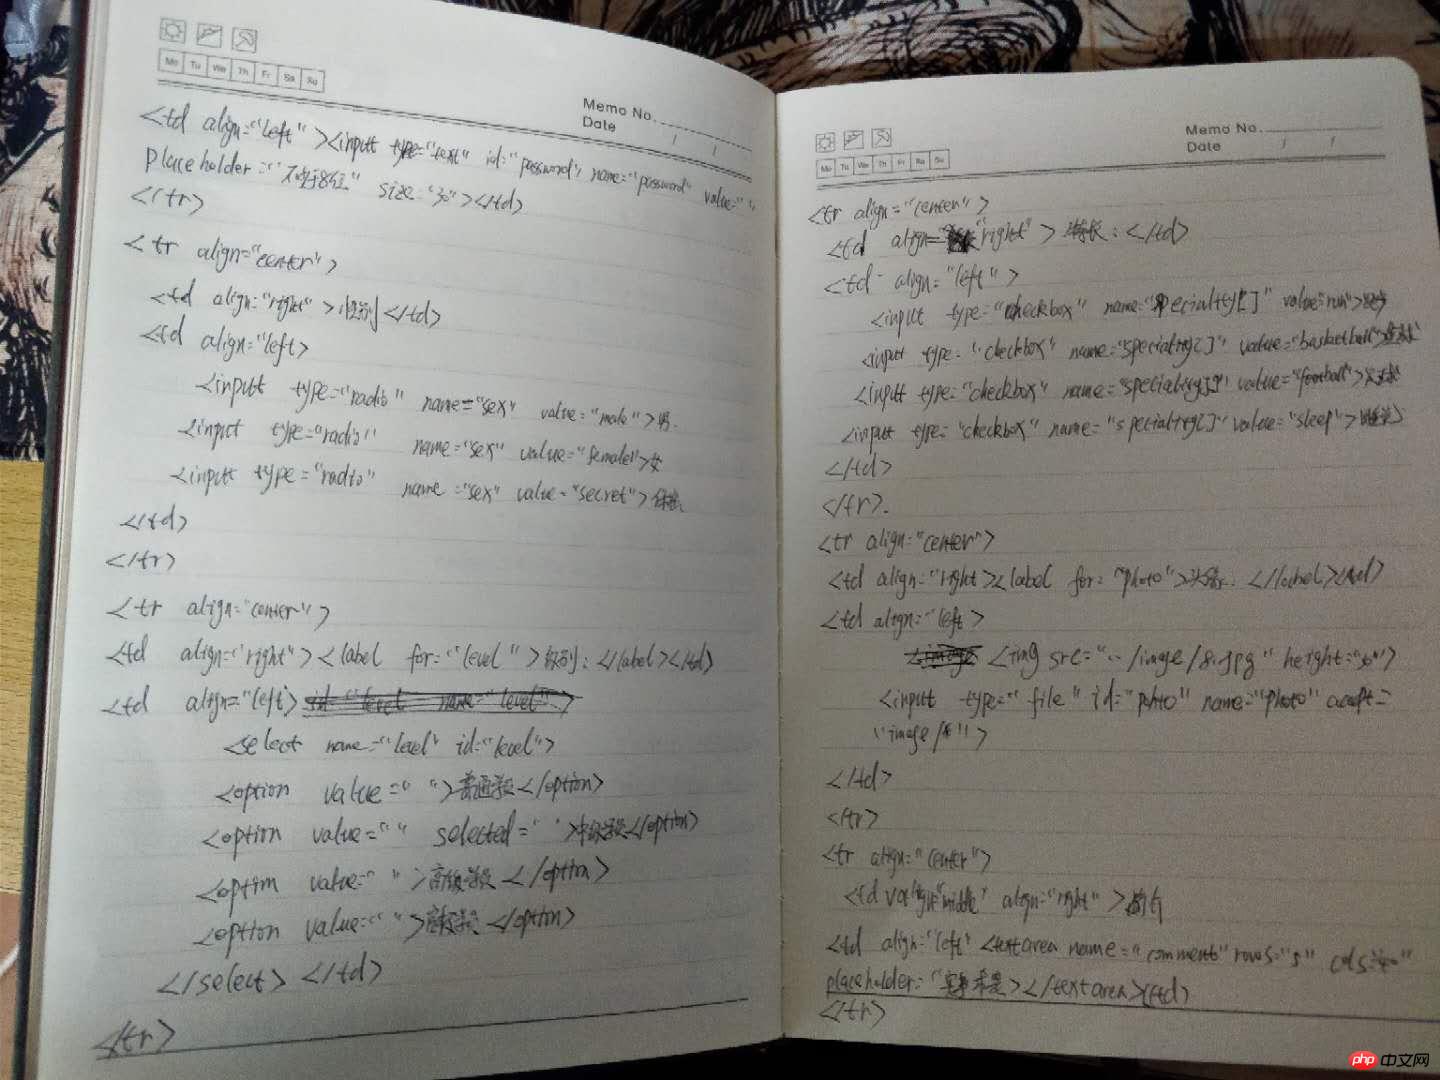 Mo Tu We Th Fr Sa Su
Memo No.
Date / /
<td align="left"><input type="text" id="password" name="password" value=" "
placeholder="不少于8位" size="30"></td>
</tr>
<tr align="center">
<td align="right">性别</td>
<td align="left>
<input type="radio" name="sex" value="male">男
<input type="radio" name="sex" value="female">女
<input type="radio" name="sex" value="secret">
</td>
</tr>
<tr align="center">
<td align="right"><label for="level">级别:</label></td>
<td align="left>
<select name="level" id="level">
<option value=" ">普通</option>
<option value=" " selected=" "></option>
<option value=" ">高级</option>
<option value=" "></option>
</select></td>
</tr>
Mo Tu We Th Fr Sa Su
Memo No.
Date / /
<tr align="center">
<td align="right">特长:</td>
<td align="left">
<input type="checkbox" name="specialtyt[]" value="run">
<input type="checkbox" name="specialtyt[]" value="basketball">
<input type="checkbox" name="specialtyt[]" value="football">
<input type="checkbox" name="specialtyt[]" value="sleep">
</td>
</tr>.
<tr align="center">
<td align="right><label for="photo">头像:</label></td>
<td align="left>
<img src="../image/8.jpg" height="30">
<input type="file" id="pohto" name="photo" accept=
"image/*">
</td>
</tr>
<tr align="center">
<td valign="middle" align="right">
<td align="left" <textarea name="comment" rows="5" cols="40"
placeholder="></textarea></td>
</tr>
php 中文网